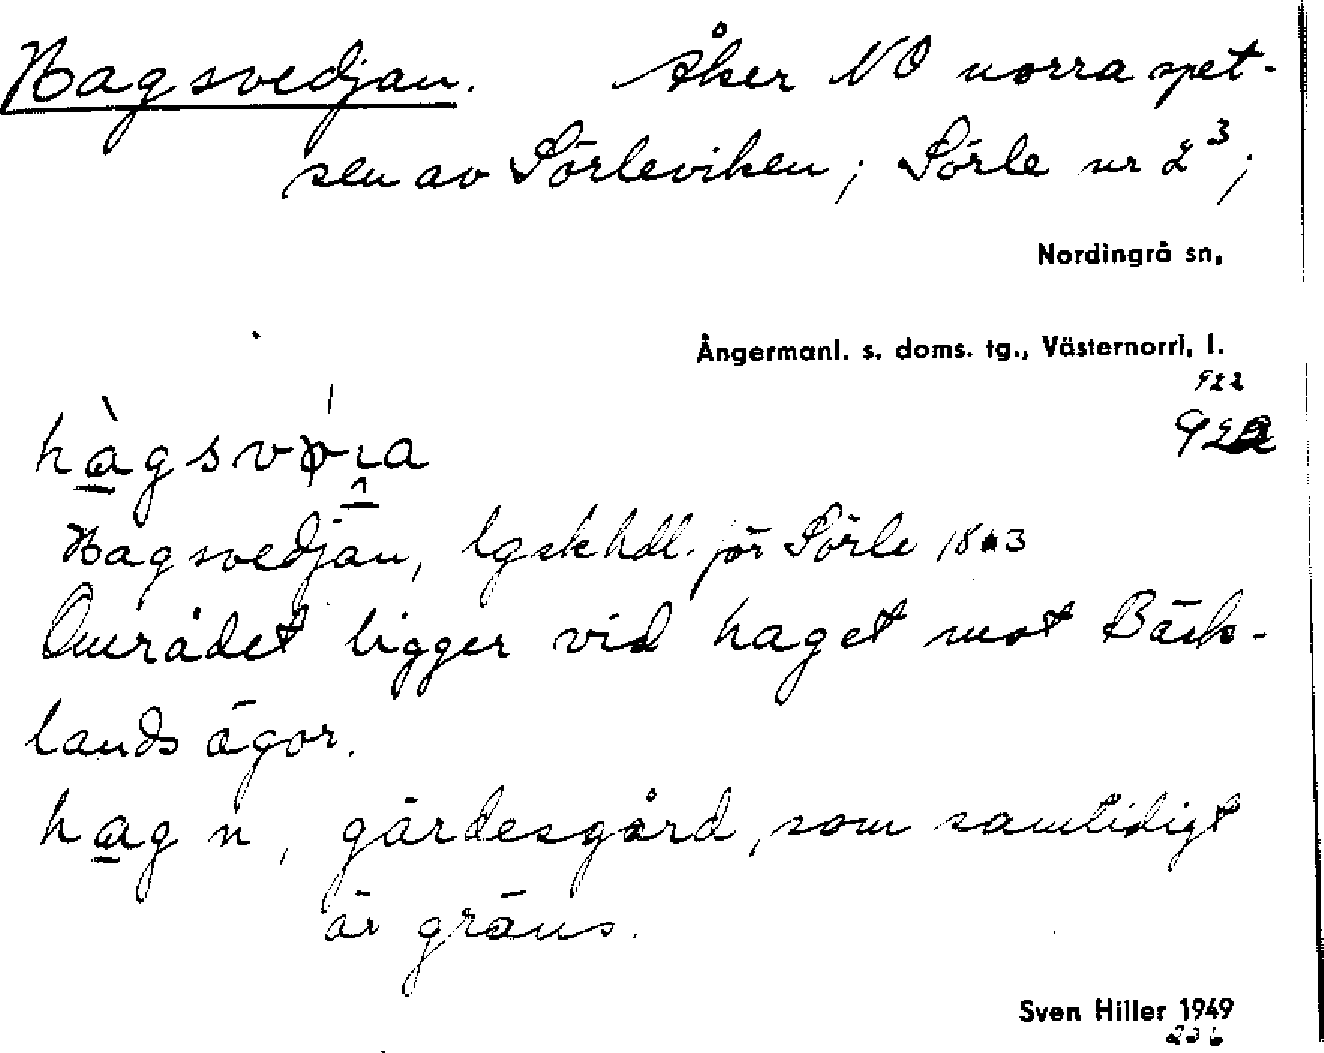 Hagsvedjan. Åker NO norra spet-
sen av Sörleviken; Sörle nr 2³;
Nordingrå sn,
Ångermanl. s. doms. tg., Västernorrl. l.
922
922
Hagsvedjan, lgsk hdl. för Sörle
Området ligger vid haget mot Bäck-
lands ägor.
hag n, gärdesgård, som samtidigt
är gräns.
Sven Hiller 1949